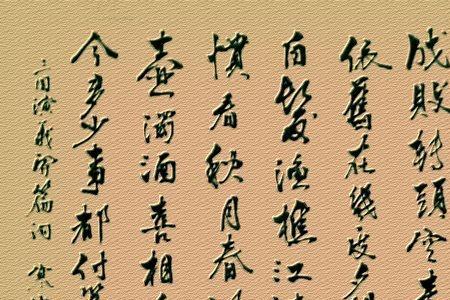 成敗轉頭空
依舊在幾度夕
白髮漁樵江
慣看秋月春
壺濁酒喜相
今多少事都付
三國演義開篇詞